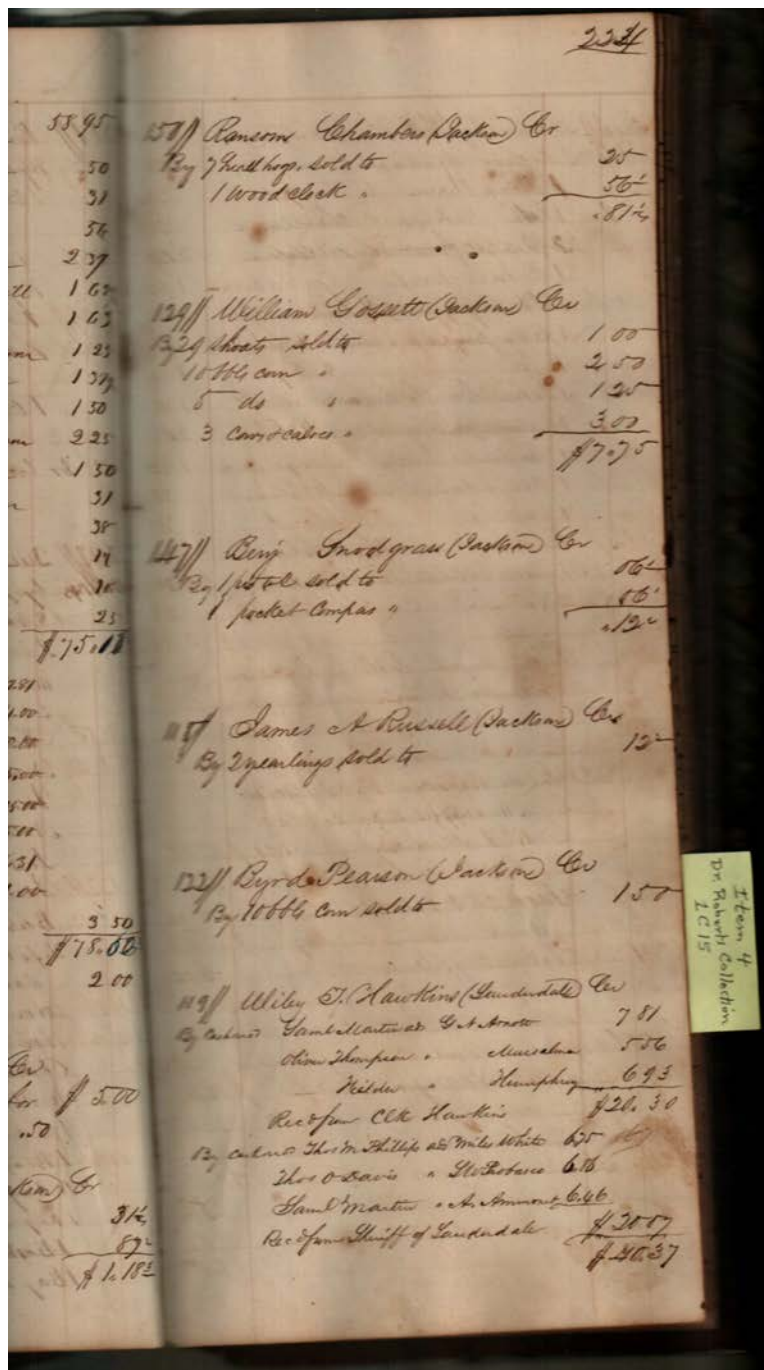 58 95
50
31
56
2 37
1 62
1 63
1 25
1 37½
1 50
2 25
1 50
31
38
19
25
$75.18
3 50
2 00
Cr
for $ 5.00
.50
Cr
31½
87½
$1.18¾
224
150// Ransom Chambers (Jackson) Cr
By 7 head hogs, sold to 25
1 wood clock " 56¼
.81¼
129// William Gossett (Jackson) Cr
By 29 shoats sold to 1 00
10 bbls corn " 2 50
5 do " 1 25
3 cows & calves " 3.00
$7.75
147// Benj Snodgrass (Jackson) Cr
By 1 pistol sold to 06¼
1 pocket compas " 06¼
.12½
115// James A Russell (Jackson) Cr
By 2 yearlings sold to 12½
122// Byrd Pearson (Jackson) Cr
By 10 bbls corn sold to 1 50
119// Wiley T. Hawkins (Lauderdale) Cr
By Saml Martin ads G A Arnott 7 81
Oliver Thompson " Musselman 5 56
Wilder " Humphrey 6 93
Recd from Clk Hawkins $20.30
By Thos M Phillips ads Miles White 6.75
Thos O Davis " 6.86
Saml Martin " 6.46
Recd from Sheriff of Lauderdale $20.07
$40.37
Item 4
Dr. Roberts Collection
1C15